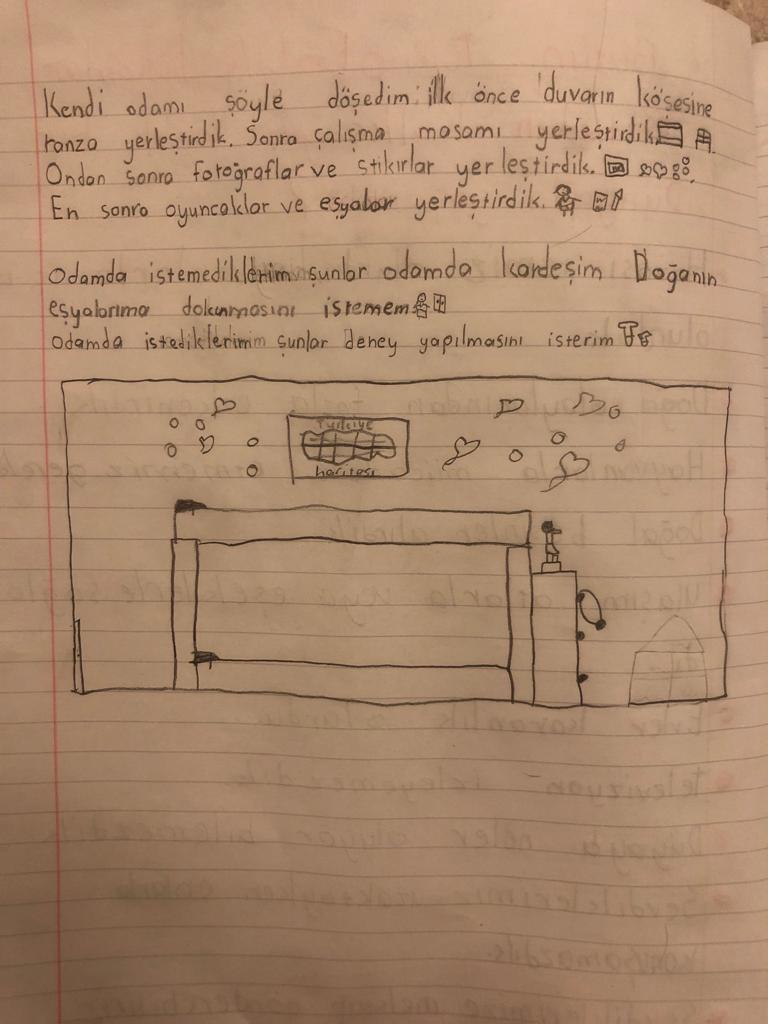 Kendi odamı şöyle döşedim: ilk önce duvarın köşesine
ranza yerleştirdik. Sonra çalışma masamı yerleştirdik
Ondan sonra fotoğraflar ve stikırlar yerleştirdik.
En sonra oyuncaklar ve eşyalar yerleştirdik.
Odamda istemediklerim şunlar odamda kardeşim Doğanın
eşyalarıma dokunmasını istemem
Odamda istediklerimin şunlar deney yapılmasını isterim
Türkiye
haritası